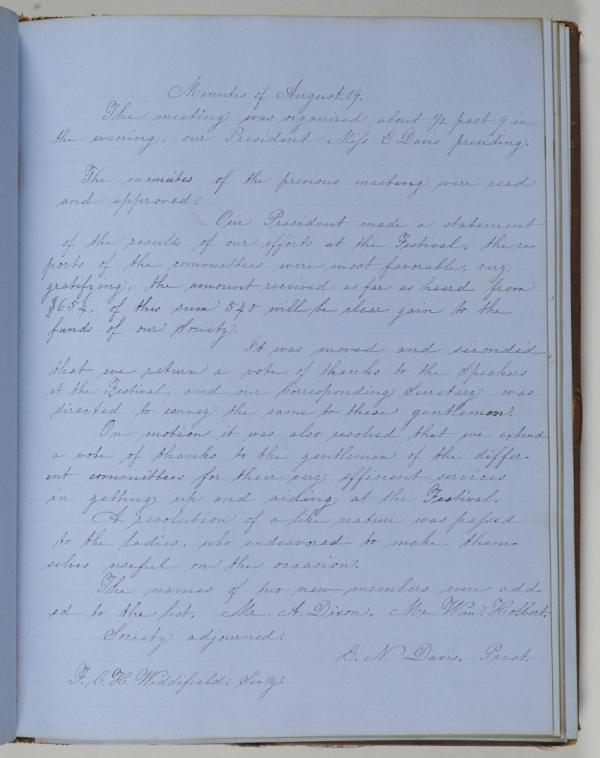 Minutes of August, 19.
The meeting was organized about ½ past 9 in
the evening, our President Miss E. Davis presiding.
The minutes of the previous meeting were read
and approved.
Our President made a statement
of the results of our efforts at the Festival, the re-
ports of the committees were most favorable, very
gratifying, the amount received as far as heard from
$654, of this sum 540 will be clear gain to the
funds of our Society.
It was moved and seconded,
that we return a vote of thanks to the Speakers
at the Festival, and our Corresponding Secretary was
directed to convey the same to these gentlemen.
On motion it was also resolved that we extend
a vote of thanks to the gentlemen of the differ-
ent committees for their very efficient services
in getting up and aiding at the Festival.
A resolution of a like nature was passed
to the ladies, who endeavored to make them-
selves useful on the occasion.
The names of two new members were add-
ed to the list, Mr. A. Dixon, Mr. Wm. Holbert.
Society adjourned.
E. N. Davis, Prest.
F. C. H. Widdifield, Sec'y.